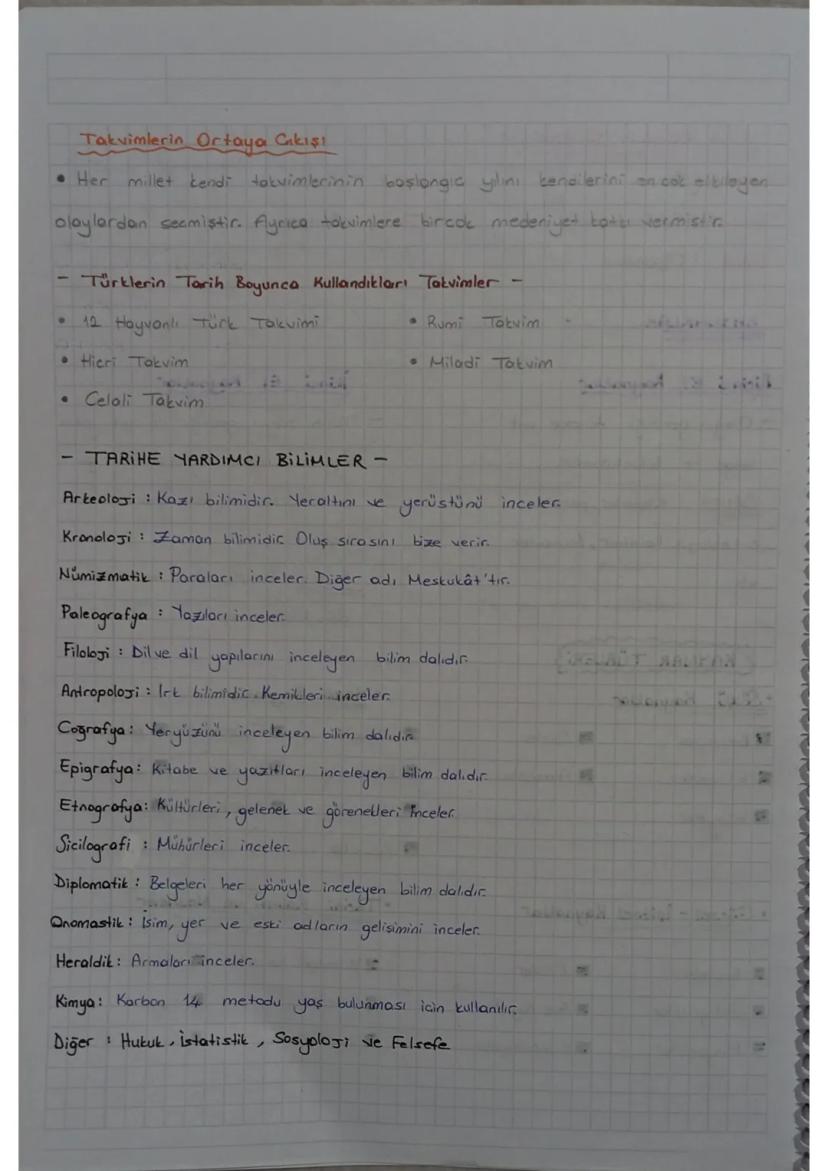 Takvimlerin Ortaya Çıkışı
• Her millet kendi takvimlerinin başlangıç yılını kendilerini en çok etkileyen
olaylardan seçmiştir. Ayrıca takvimlere birçok medeniyet katkı vermiştir.
- Türklerin Tarih Boyunca Kullandıkları Takvimler -
• 12 Hayvanlı Türk Takvimi
• Rumi Takvim
• Hicri Takvim
• Miladi Takvim
• Celali Takvim
- TARİHE YARDIMCI BİLİMLER -
Arkeoloji : Kazı bilimidir. Yeraltını ve yerüstünü inceler.
Kronoloji : Zaman bilimidir. Oluş sırasını bize verir.
Nümizmatik : Paraları inceler. Diğer adı Meskukât'tır.
Paleografya : Yazıları inceler.
Filoloji : Dil ve dil yapılarını inceleyen bilim dalıdır.
Antropoloji : Irk bilimidir. Kemikleri inceler.
Coğrafya : Yeryüzünü inceleyen bilim dalıdır.
Epigrafya : Kitabe ve yazıtları inceleyen bilim dalıdır.
Etnografya : Kültürleri, gelenek ve görenekleri inceler.
Sicilografi : Mühürleri inceler.
Diplomatik : Belgeleri her yönüyle inceleyen bilim dalıdır.
Onomastik : İsim, yer ve eski adların gelişimini inceler.
Heraldik : Armaları inceler.
Kimya : Karbon 14 metodu yaş bulunması için kullanılır.
Diğer : Hukuk, İstatistik, Sosyoloji ve Felsefe